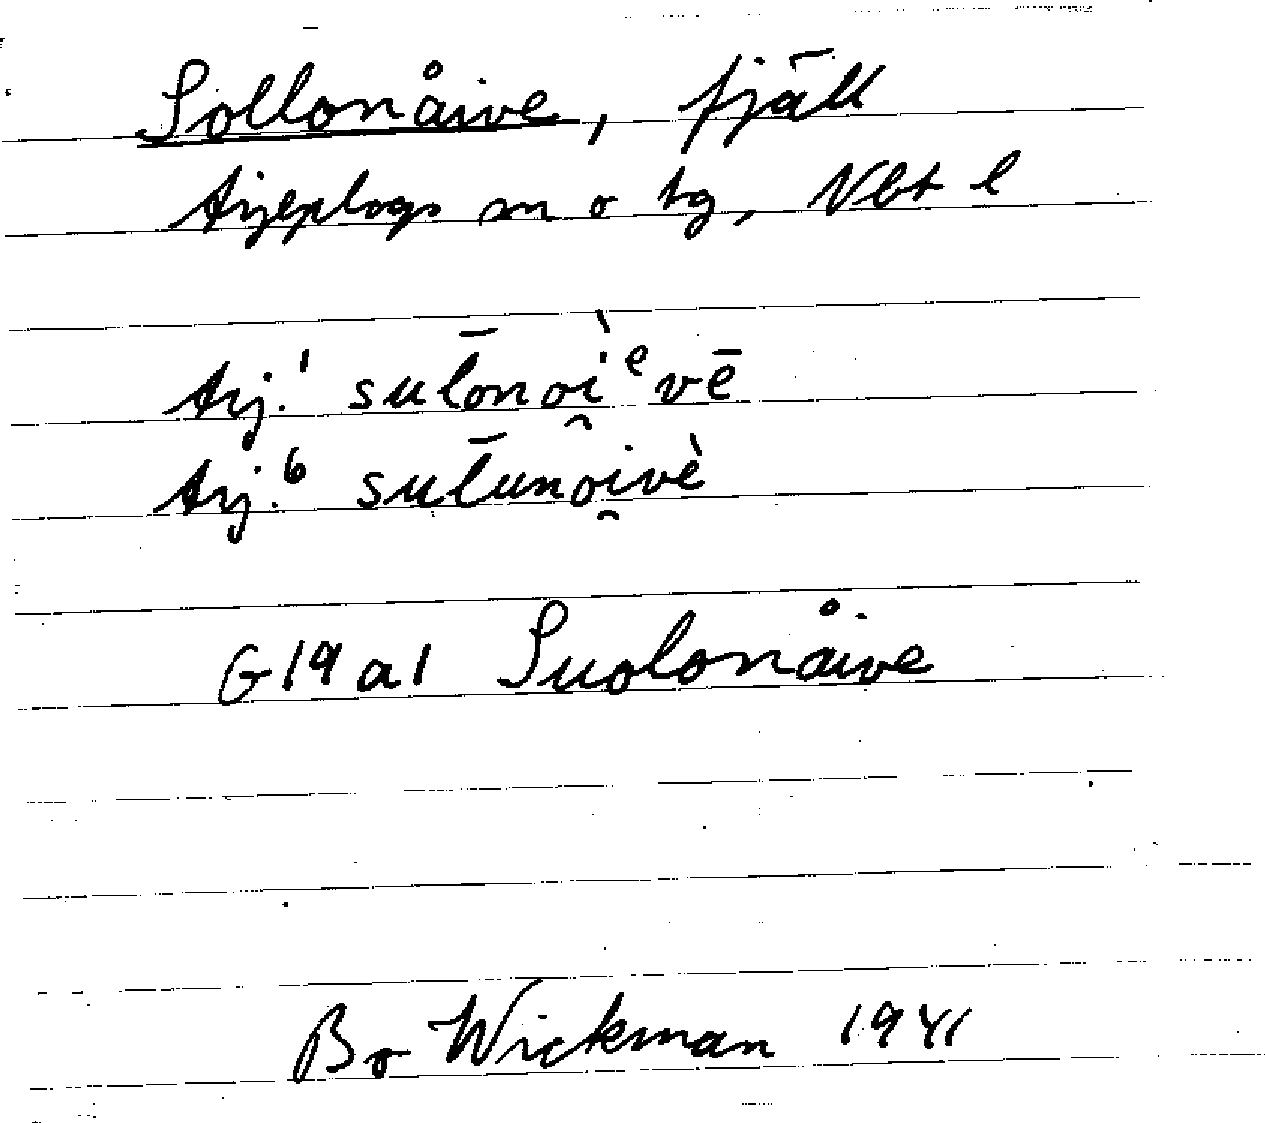 Sollonåive, fjäll
Arjeplogs sn o tg, Vbt l
Arj.¹ sul̄onoì̯ᵉvē
Arj.⁶ sul̄unoi̯vè
G19a1 Suolonåive
Bo Wickman 1941